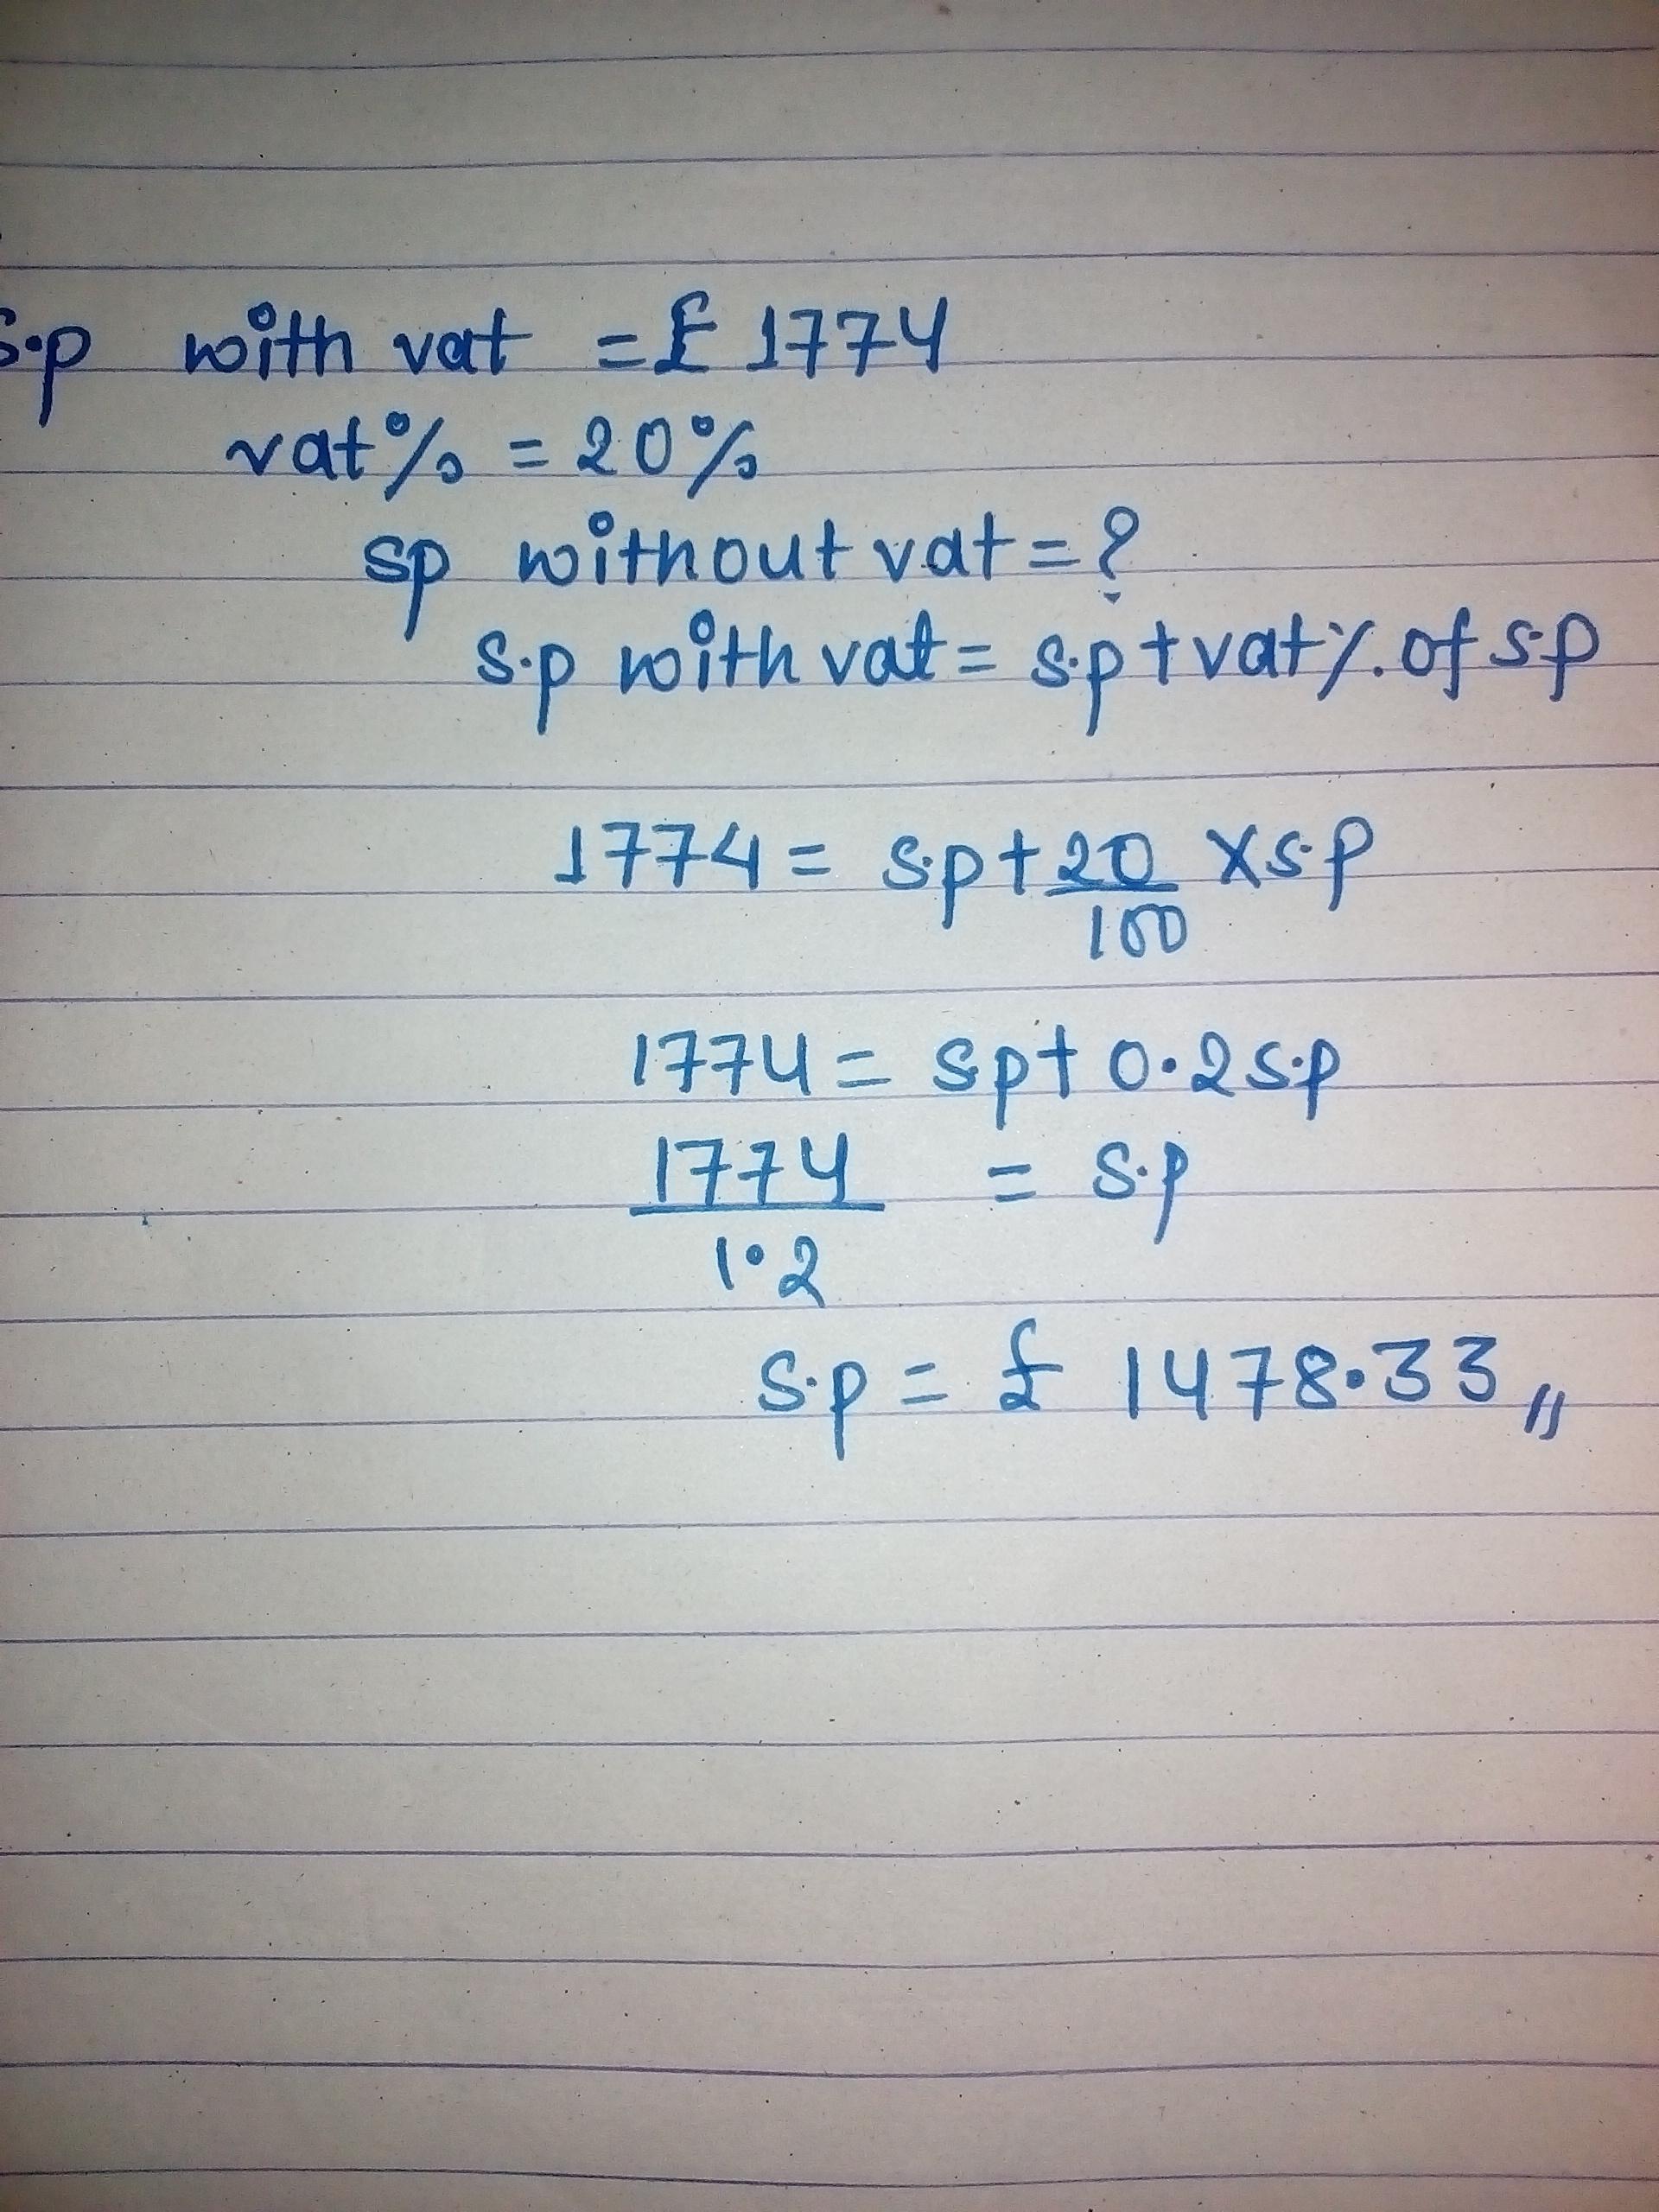 S.p with vat = £ 1774
vat% = 20%
sp without vat = ?
s.p with vat = s.p + vat% of s.p
1774 = s.p + 20/100 × s.p
1774 = s.p + 0.2 s.p
1774/1.2 = s.p
s.p = £ 1478.33 "